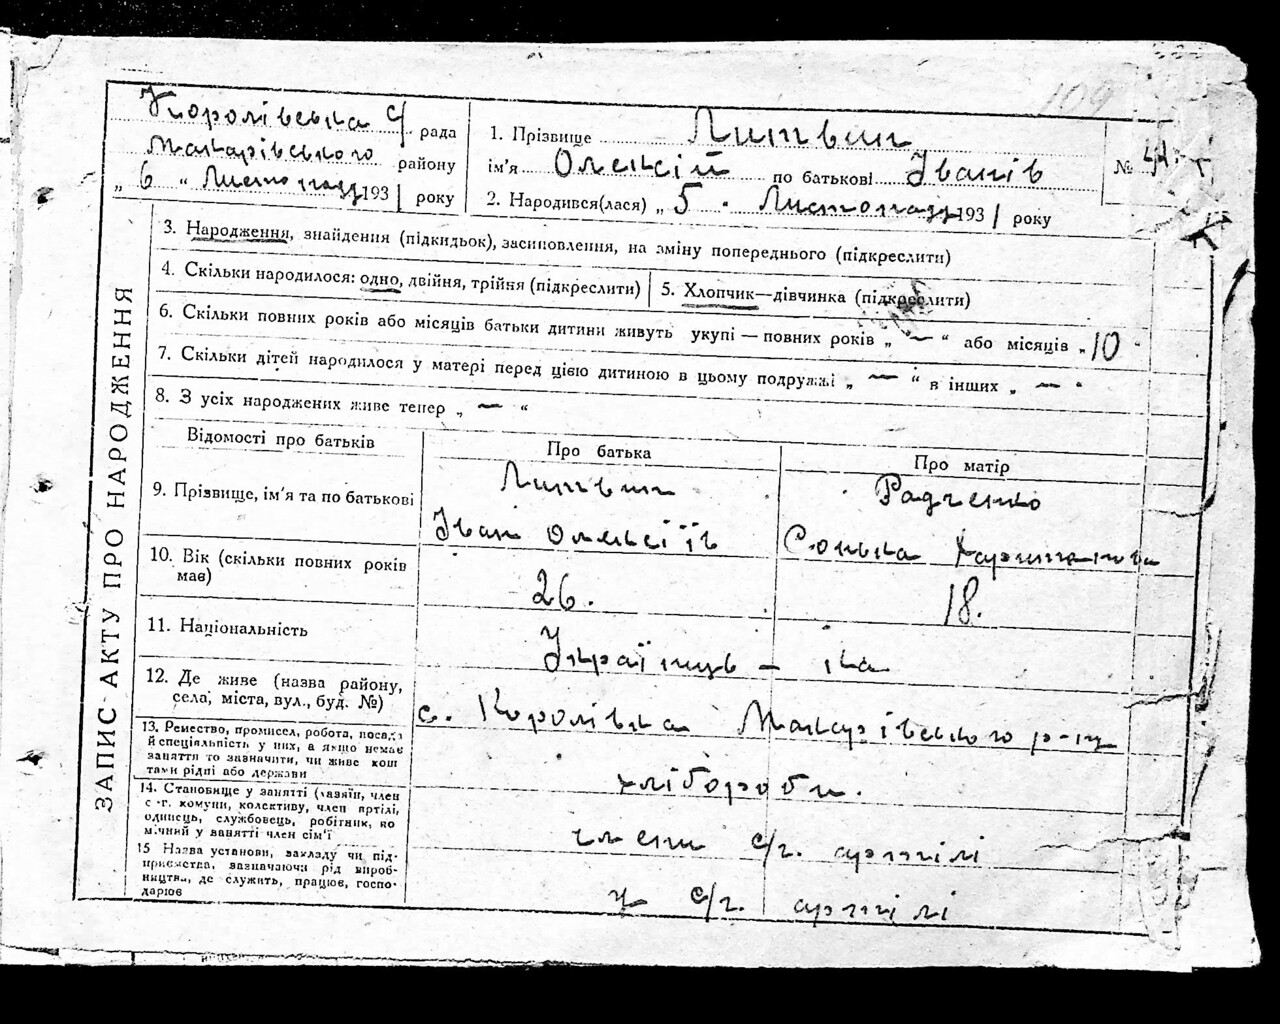 109
Королівська с/ рада
Макарівського району
„ 6 “ Листопаду 1931 року
1. Прізвище Литвин
ім'я Олексій по батькові Іванів
2. Народився(лася) „ 5 . Листопаду 1931 року
№
ЗАПИС АКТУ ПРО НАРОДЖЕННЯ
3. Народження, знайдення (підкидьок), засиновлення, на зміну попереднього (підкреслити)
4. Скільки народилося: одно, двійня, трійня (підкреслити)
5. Хлопчик—дівчинка (підкреслити)
6. Скільки повних років або місяців батьки дитини живуть укупі — повних років „ — “ або місяців „ 10 “
7. Скільки дітей народилося у матері перед цією дитиною в цьому подружжі „ — “ в інших „ — “
8. З усіх народжених живе тепер „ — “
Відомості про батьків
Про батька
Про матір
9. Прізвище, ім'я та по батькові
Литвин
Іван Олексіїв
Радченко
Сонька
10. Вік (скільки повних років
має)
26.
18.
11. Національність
Українців — іка
12. Де живе (назва району,
села, міста, вул., буд. №)
с. Королівка Макарівського р-ну
13. Ремество, промисел, робота, посада
й спеціяльність у них, а якщо немає
заняття то зазначити, чи живе кош
тами рідні або держави
хлібороби.
14. Становище у занятті (хазяїн, член
с -г. комуни, колективу, член артілі,
одинець, службовець, робітник, по
мічний у занятті член сім'ї
члени с/г. артілі
15 Назва установи, закладу чи під-
приємства, зазначаючи рід вироб-
ництва, де служить, працює, госпо-
дарює
у с/г. артілі